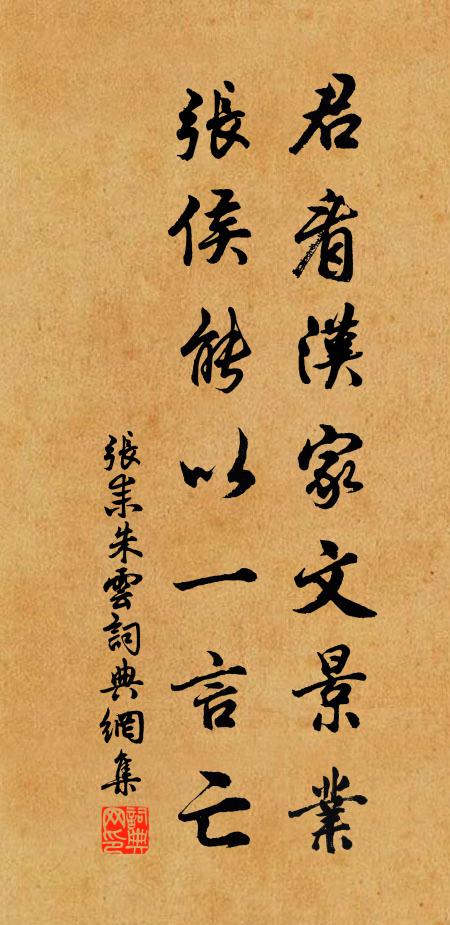 君看漢家文景業
張侯能以一言亡
張耒朱雲詞典網集
詞典
网印